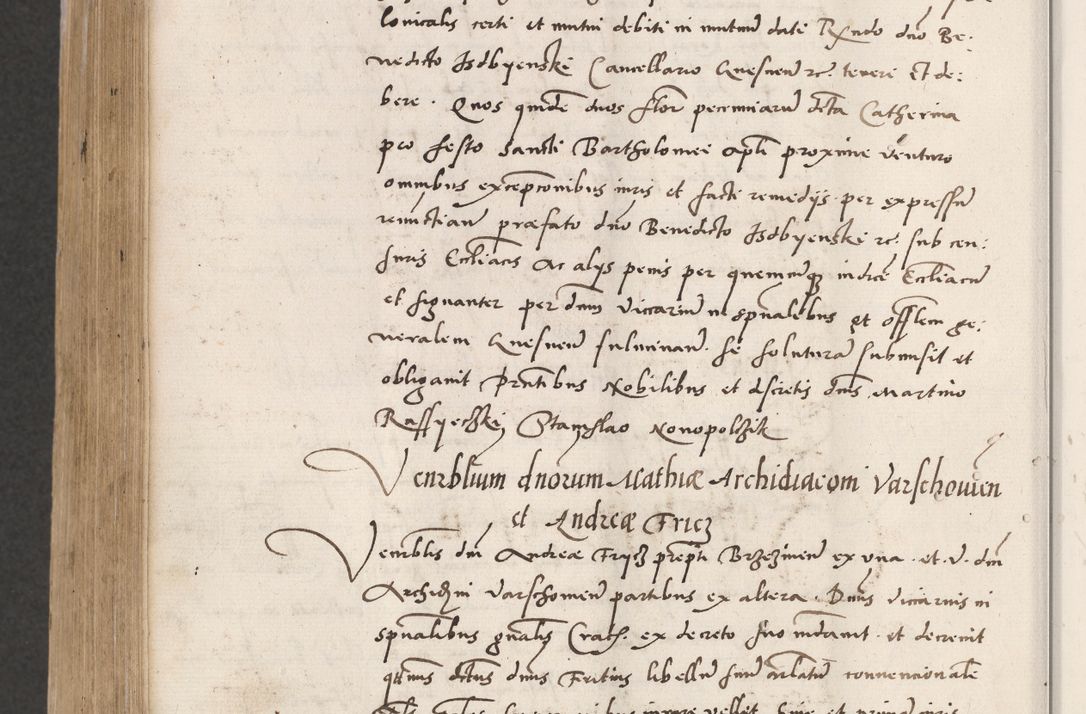 lonicalis certi et mutui debiti in mutuum dati Rndo dno Be:
nedicto Isdbyenski Cancellario Gnesnen rc. tenere Et de:
bere. Quos quidem duos flor pecuniarum dicta Catherina
pro festo Sancti Bartholomei apli proxime venturo
omnibus excepconibus iuris et facti remedijs per expressum
renunctians praefato dno Benedicto Isdbyenski rc. sub cen:
suris Eccliacis ac alijs penis per quemcunque iudicem Eccliacum
et signanter per dnum vicarium in spualibus et offlem ge:
neralem Gnesnen fulminan. se soluturam submisit et
obligavit Pntibus Nobilibus et discretis dnis Martino
Rassyeczki Stanislao Nonopolczik
Venrblium dnorum Mathiæ Archidiaconi Varschovien
et Andreæ Fricz
Venrblis dni Andreæ Fricz prepti Brzezinen ex una. et. V. dni
Archidni Varschovien partibus ex altera. Dnus vicarius in
spualibus gnalis Crac. ex decreto suo mdavit. et decrevit
qtnus dictus dnus Fritius libellum suum arlatum convencionale